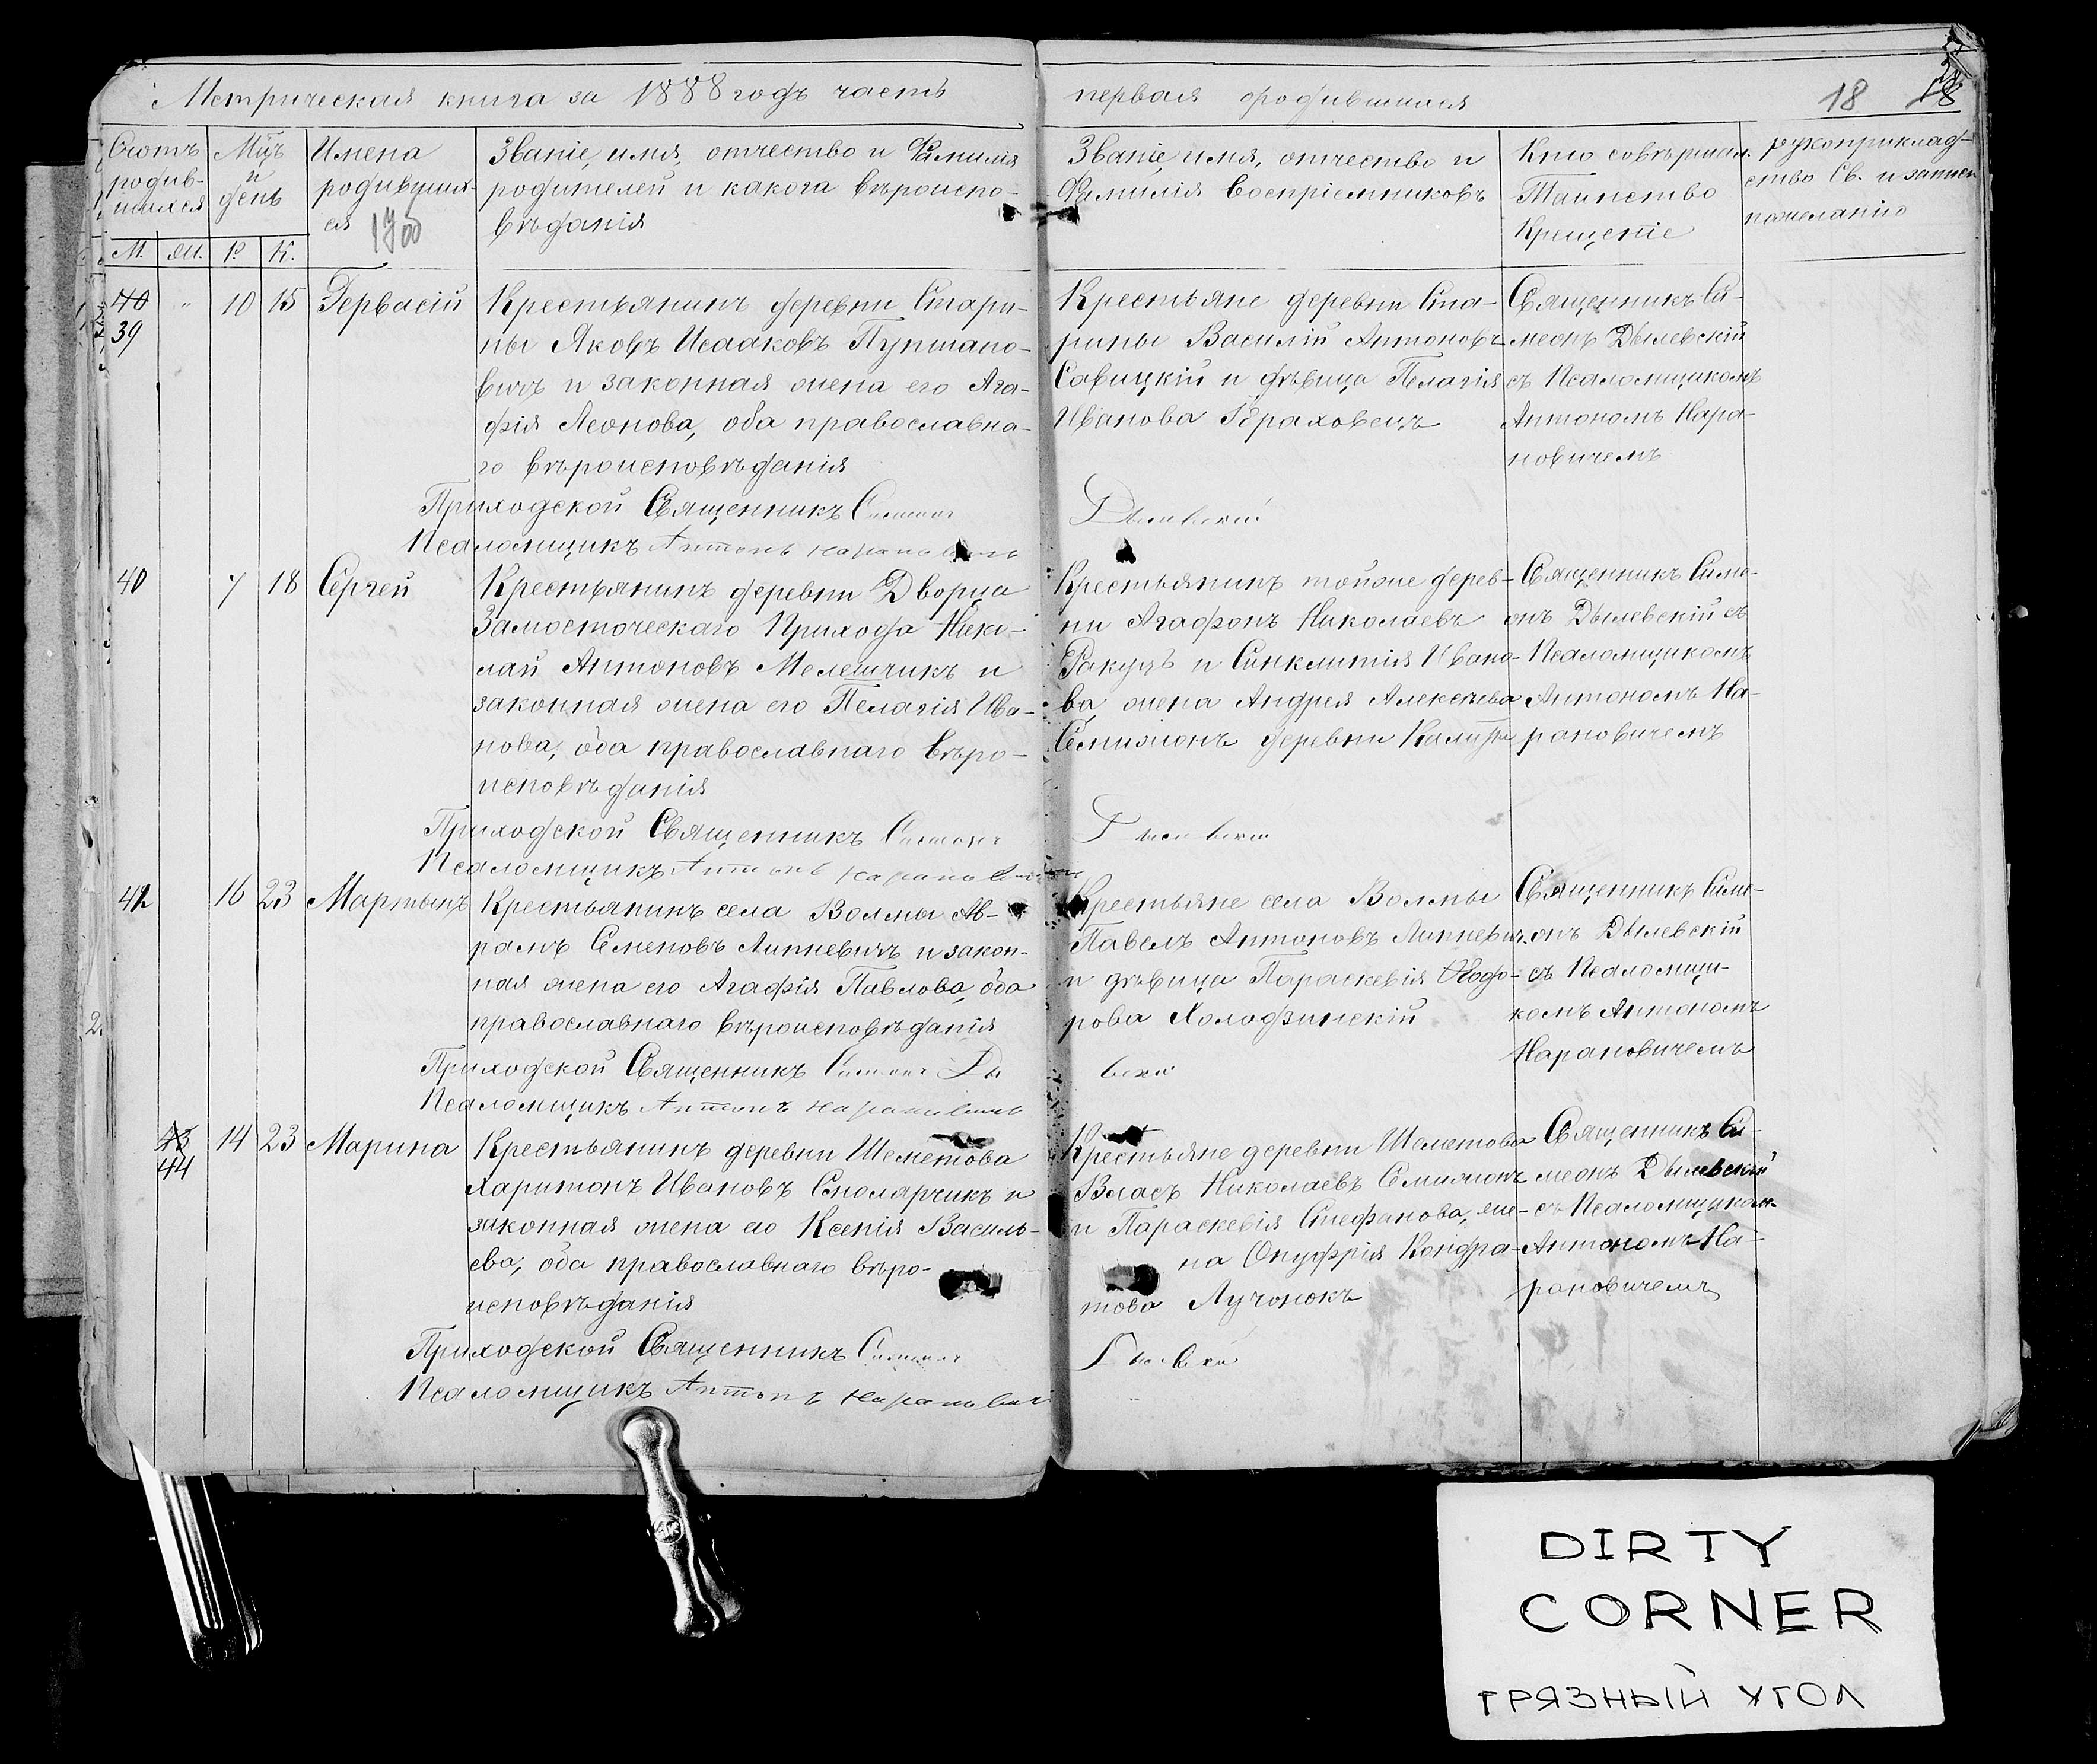 Метрическая книга за 1888 годъ часть
первая о родившихся
18 18
Счотъ родив-шихся
Мцъ и день
Имена родившихся
Званіе, имя, отчество и Фамилія
родителей и какога вѣроиспо-
вѣданія
Званіе, имя, отчество и
Фамилія Воспріемниковъ
Кто совершал.
Таинство
Крещеніе
рукоприклад-
ство Св. и записи
пожеланію
М. Ж. Р. К.
40 " 10 15 Гервасій
39
Крестьянинъ деревни Стари-
ны Яковъ Исааковъ Пупшано-
вичъ и законная жена его Ага-
фія Леонова, оба православна-
го вѣроисповѣданія
Крестьяне деревни Ста-
рины Василій Антоновъ
Савицкій и дѣвица Пелагія
Иванова Бѣраховецъ
Священникъ Си-
меонъ Дылевскій
съ Псаломщикомъ
Антономъ Нара-
новичемъ
Приходской Священникъ Симеонъ Дылевскій
Псаломщикъ Антонъ Нарановичъ
40 7 18 Сергей
Крестьянинъ деревни Дворца
Замосточескаго Прихода Нико-
лай Антоновъ Мелешчикъ и
законная жена его Пелагія Ива-
нова, оба православнаго вѣро-
исповѣданія
Крестьянинъ тойже дерев-
ни Агафонъ Николаевъ
Ракуцъ и Синклитія Ивано-
ва, жена Андрея Алексѣева
Семижонъ деревни
Священникъ Симе-
онъ Дылевскій съ
Псаломщикомъ
Антономъ На-
рановичемъ
Приходской Священникъ Симеонъ Дылевскій
Псаломщикъ Антонъ Нарановичъ
42 16 23 Мартынъ
Крестьянинъ села Волмы Ав-
рамъ Семеновъ Липневичъ и закон-
ная жена его Агафія Павлова, оба
православнаго вѣроисповѣданія
Крестьяне села Волмы
Павелъ Антоновъ Липневич.
и дѣвица Параскевія Ѳеодо-
рова Холодзинскій
Священникъ Симе-
онъ Дылевскій
съ Псаломщи-
комъ Антономъ
Нарановичемъ
Приходской Священникъ Симеонъ Ды вскій
Псаломщикъ Антонъ Нарановичъ
43 14 23 Марина
44
Крестьянинъ деревни Шеметова
Харитонъ Ивановъ Столарчикъ и
законная жена его Ксенія Василь-
ева, оба православнаго вѣро-
исповѣданія
Крестьяне деревни Шеметова
Власъ Николаевъ Семижонъ
и Параскевія Стефанова, же-
на Онуфрія Кондра-
това Лучонокъ
Священникъ Си-
меонъ Дылевскій
съ Псаломщиком
Антономъ На-
рановичемъ
Приходской Священникъ Симеонъ Дылевскій
Псаломщикъ Антонъ Нарановичъ
DIRTY
CORNER
ГРЯЗНЫЙ УГОЛ